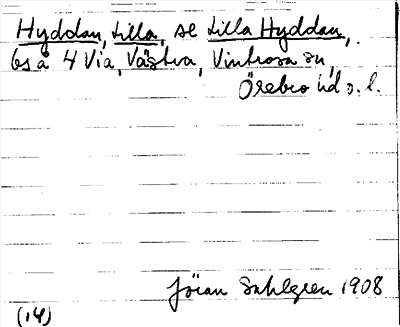 Hyddan, Lilla, se Lilla Hyddan,
bs å 4 Via, Västra, Vintrosa sn,
Örebro hd s. l.
Jöran Sahlgren 1908
(14)